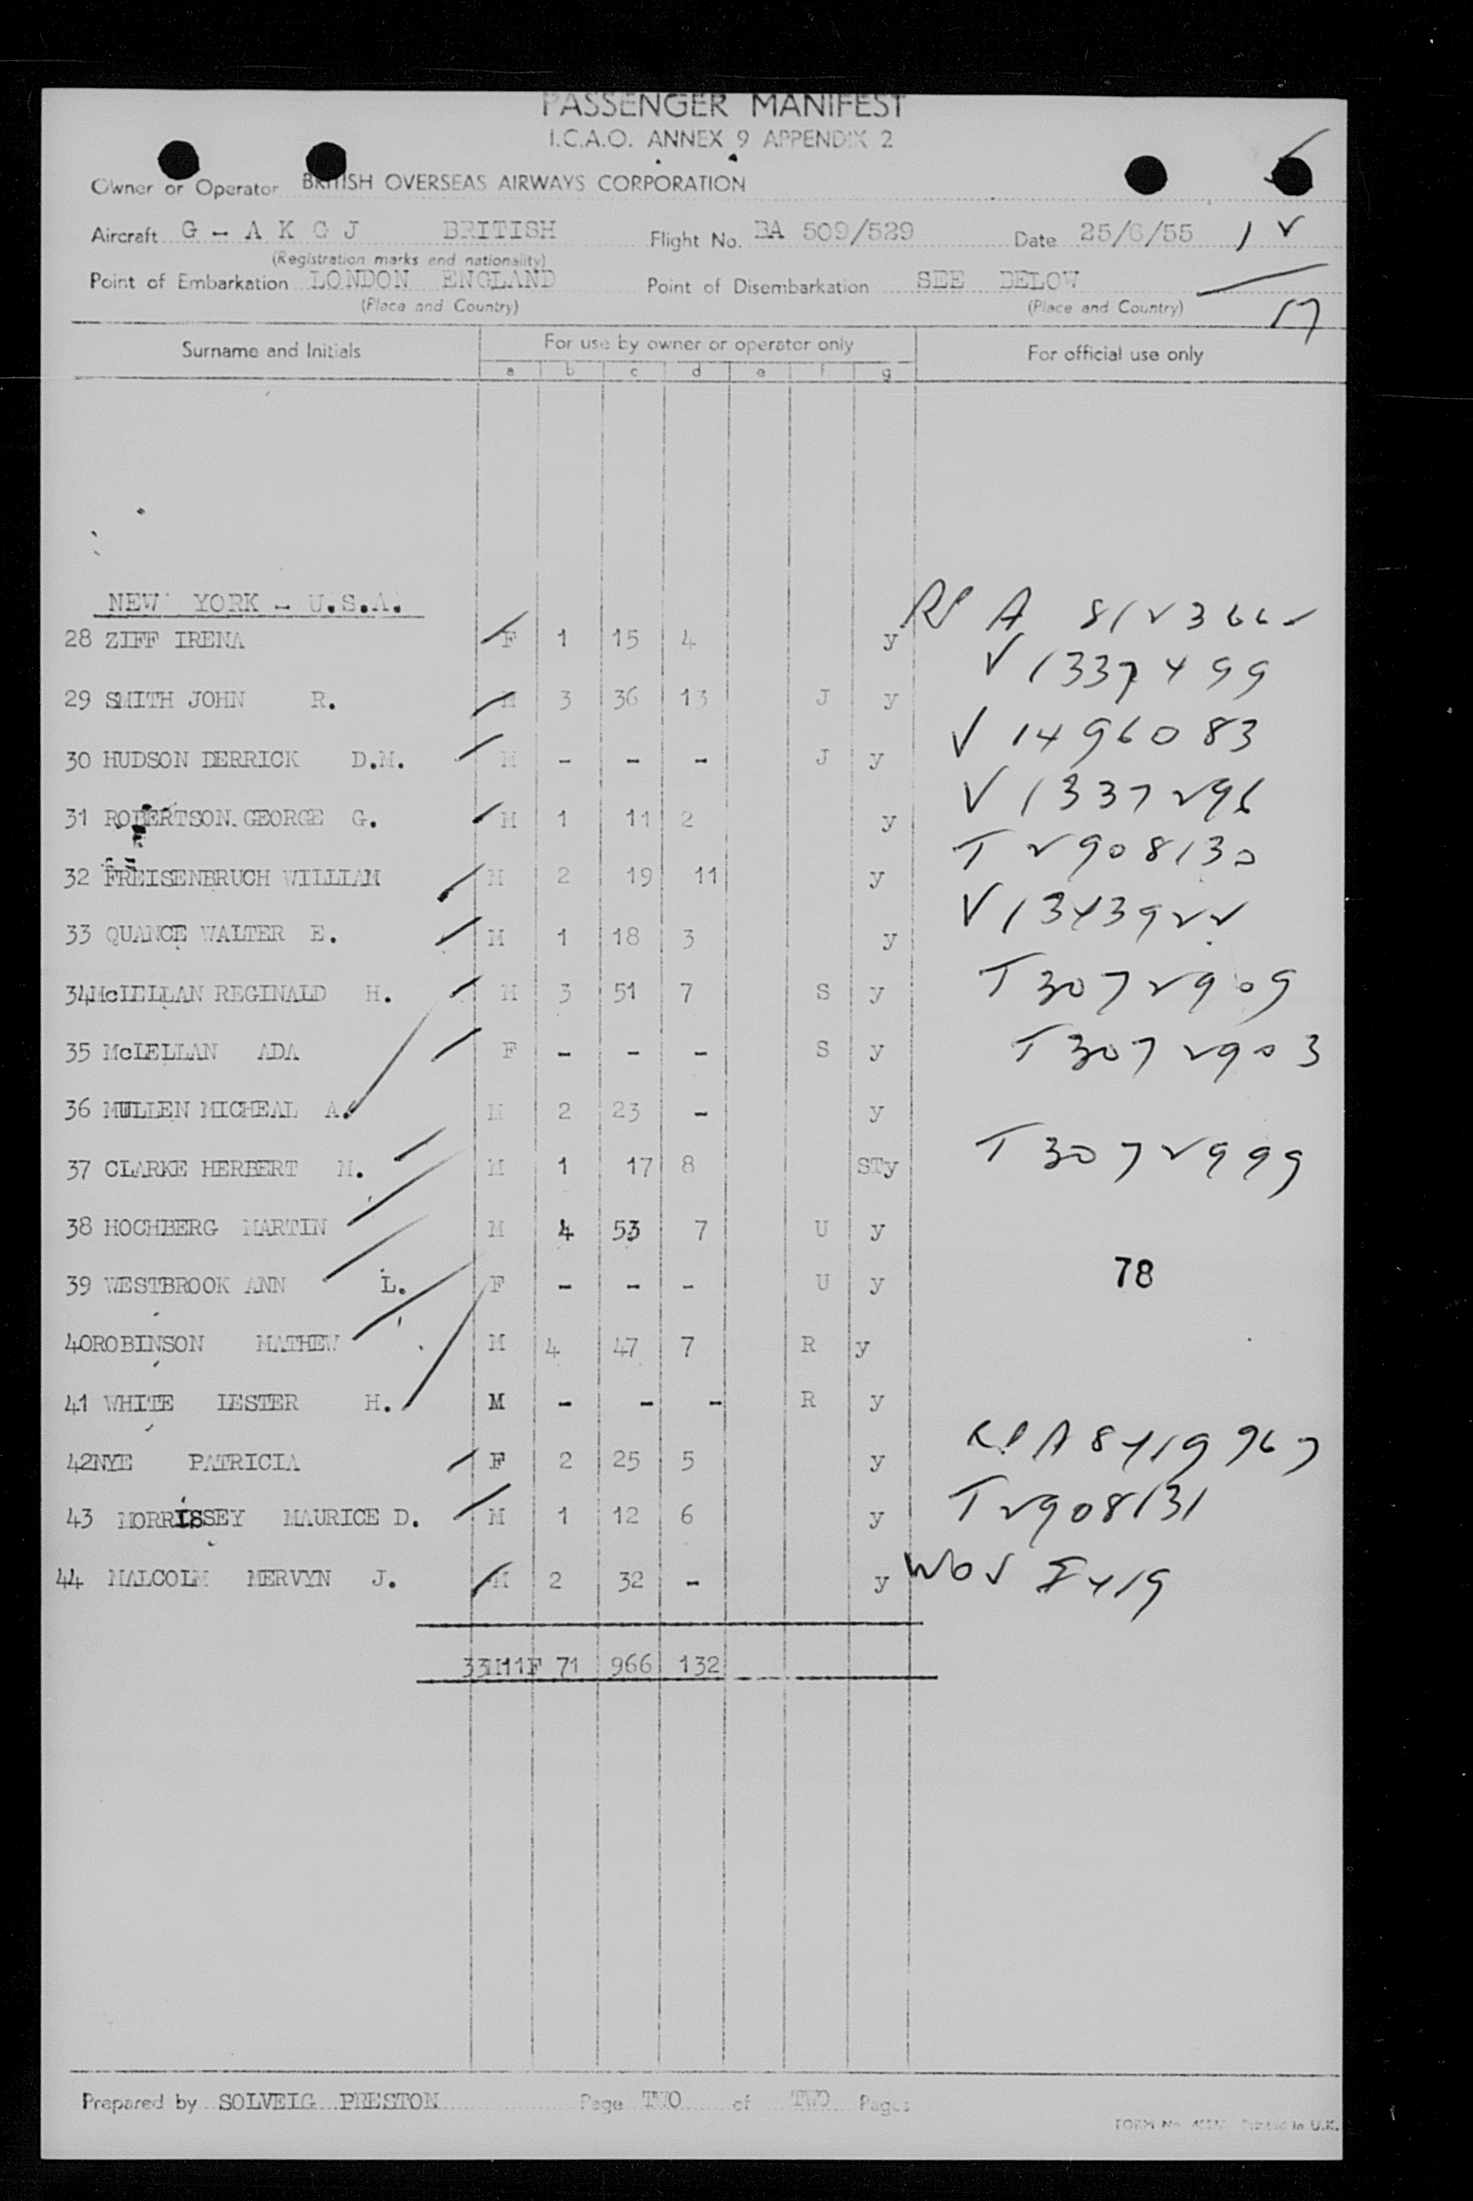 PASSENGER MANIFEST
I.C.A.O. ANNEX 9 APPENDIX 2
Owner or Operator BRITISH OVERSEAS AIRWAYS CORPORATION
Aircraft G - A K G J BRITISH Flight No. BA 509/529 Date 25/6/55
(Registration marks and nationality)
Point of Embarkation LONDON ENGLAND Point of Disembarkation SEE BELOW
(Place and Country) (Place and Country)
17
Surname and Initials For use by owner or operator only For official use only
a b c d e f g
NEW YORK - U.S.A.
28 ZIFF IRENA F 1 15 4 y
29 SMITH JOHN R. M 3 36 13 J y V 1337499
30 HUDSON DERRICK D.M. M - - - J y V 1496083
31 ROBERTSON GEORGE G. M 1 11 2 y V 1337296
32 FREISENBRUCH WILLIAM M 2 19 11 y T 2908130
33 QUANCE WALTER E. M 1 18 3 y V 1343922
34 McLELLAN REGINALD H. M 3 51 7 S y T 3072909
35 McLELLAN ADA F - - - S y T 3072903
36 MULLEN MICHEAL A. M 2 23 - y
37 CLARKE HERBERT M. M 1 17 8 STy T 3072999
38 HOCHBERG MARTIN M 4 53 7 U y
39 WESTBROOK ANN L. F - - - U y 78
40 ROBINSON MATHEW M 4 47 7 R y
41 WHITE LESTER H. M - - - R y
42 NYE PATRICIA F 2 25 5 y
43 MORRISSEY MAURICE D. M 1 12 6 y T 2908131
44 MALCOLM MERVYN J. M 2 32 - y
33M11F 71 966 132
Prepared by SOLVEIG PRESTON Page TWO of TWO Pages
FORM No Printed in U.K.